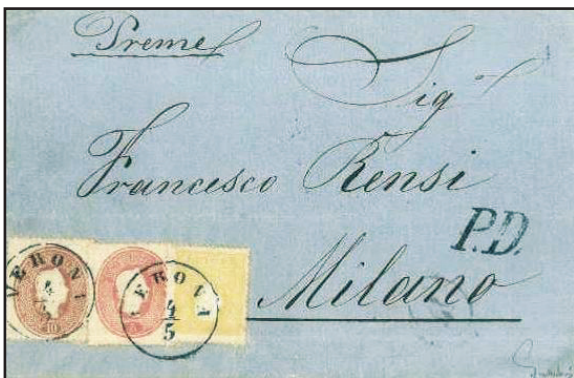 Preme
Sig.
Francesco Rensi
P.D.
Milano
VERONA
4
5
10
5
VERONA
4
5